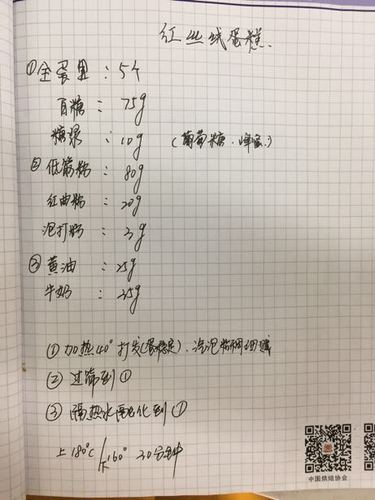 红丝绒蛋糕.
①全蛋里 : 5个
白糖 : 75g
糖浆 : 10g (葡萄糖.蜂蜜.)
②低筋粉 : 80g
红曲粉 : 20g
泡打粉 : 3g
③黄油 : 25g
牛奶 : 35g
①加热40°打发(蛋糖), 气泡粘稠细腻
②过筛到①
③隔热水融化到①
上180℃/下160° 30分钟
中国烘焙协会